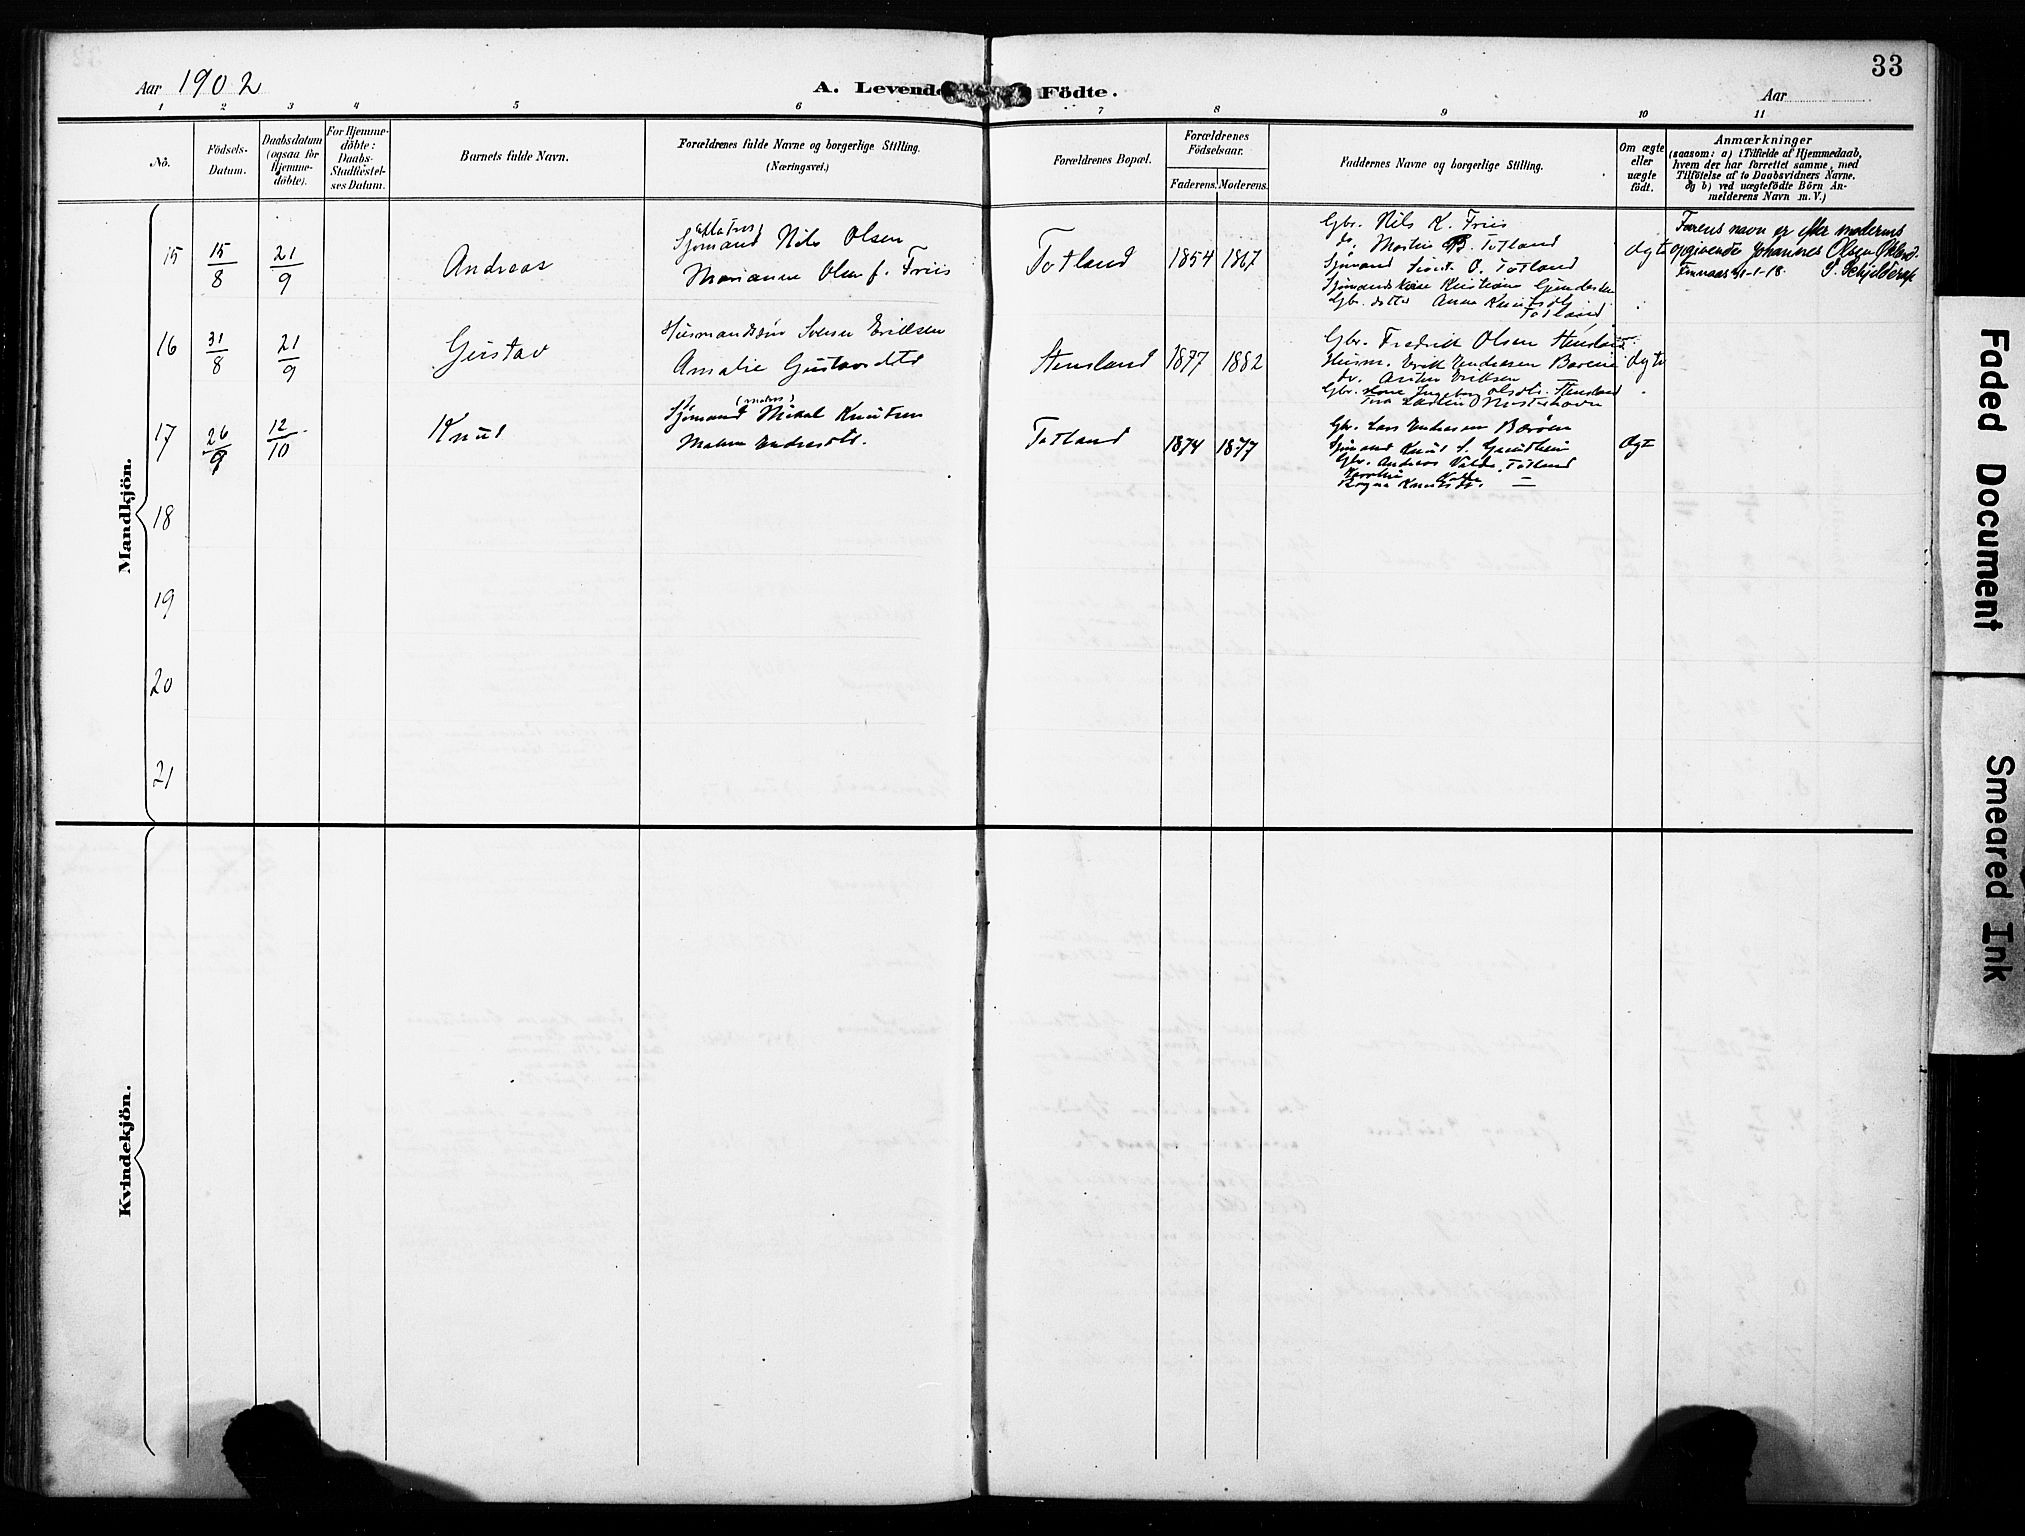 33
Aar 1902
A. Levende Födte.
Aar
1 2 3 4 5 6 7 8 9 10 11
Nô.
Födsels-
Datum.
Daabsdatum
(ogsaa for
Hjemme-
döbte).
For Hjemme-
döbte:
Daabs-
Stadfæstel-
ses Datum.
Barnets fulde Navn.
Forældrenes fulde Navne og borgerlige Stilling.
(Næringsvei.)
Forældrenes Bopæl.
Forældrenes
Födselsaar.
Faderens. Moderens.
Faddernes Navne og borgerlige Stilling.
Om ægte
eller
uægte
födt.
Anmærkninger
(saasom: a) i Tilfælde af Hjemmedaab,
hvem der har forrettet samme, med
Tilföielse af to Daabsvidners Navne.
og b) ved uægtefödte Börn An-
melderens Navn m. V.)
Mandkjön.
15 15/8 21/9 Andreas
Sjömand Nils Olsen
Marianne Olsen f. Friis
Totland 1854 1867
Gbr. Nils K. Friis
do. Martin B. Totland
Sjömand Sivert O. Totland
Sjömandskone Kristine
Gbr. datter Anna Knutsdtr
Totland
Ægte
Farens navn er efter moderens
opgivende Johannes Olsen
Finnaas 21-1-18. Schjelderup
16 31/8 21/9 Gustav
Husmandssön Svensen Eriksen
Amalie Gustavsdtr
Stensland 1877 1882
Gbr. Fredrik Olsen Stensland
Husm. Erik Endresen
do. Eriksen
Gbr. Kone Ingeborg Olsdtr. Stensland
Ægte
17 26/9 12/10 Knut
Sjömand Mikal Knutsen
Malene Endresdtr.
Totland 1874 1877
Gbr. Lars Endresen
Sjömand Knut S.
Gbr. Andreas Totland
Knutsdtr. —
Ægte
18
19
20
21
Kvindekjön.
Faded Document
Smeared Ink